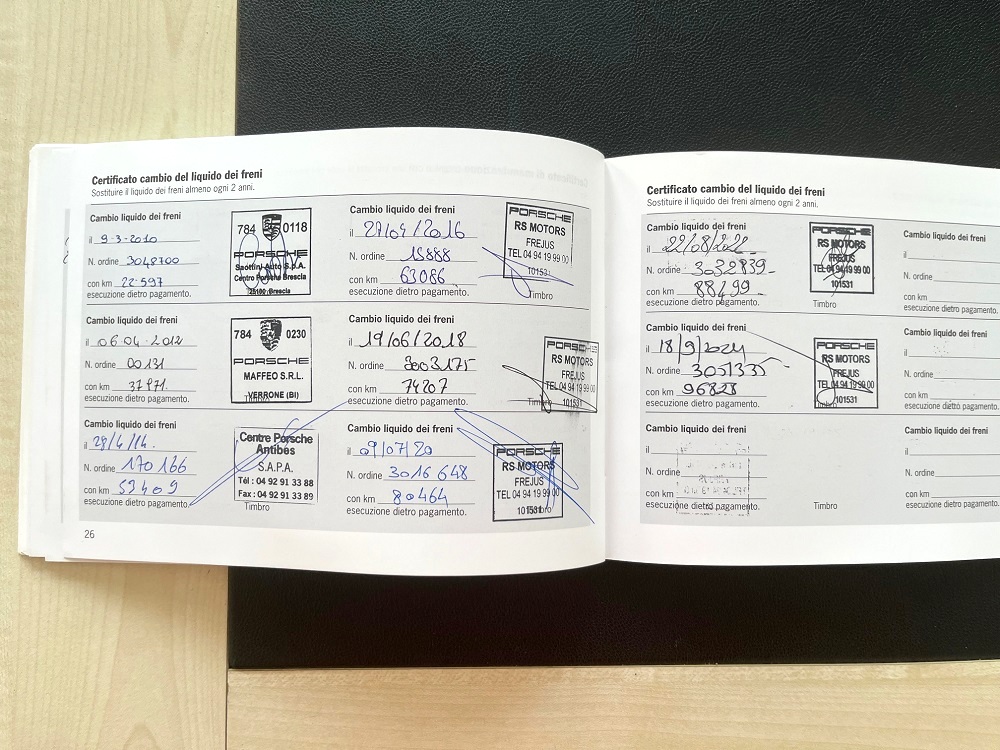 Certificato cambio del liquido dei freni
Sostituire il liquido dei freni almeno ogni 2 anni.
Cambio liquido dei freni
il 9-3-2010
N. ordine 3042700
con km 22.597
esecuzione dietro pagamento.
784 0118
PORSCHE
Saottini Auto S.p.A.
Centro Porsche Brescia
25100 Brescia
Cambio liquido dei freni
il 06 04 2012
N. ordine 00131
con km 37971.
esecuzione dietro pagamento.
784 0230
PORSCHE
MAFFEO S.R.L.
VERRONE (BI)
Cambio liquido dei freni
il 29/4/14.
N. ordine 170166
con km 53409
esecuzione dietro pagamento.
Centre Porsche
Antibes
S.A.P.A.
Tél : 04 92 91 33 88
Fax : 04 92 91 33 89
Timbro
Cambio liquido dei freni
il 27/04/2016
N. ordine 15888
con km 63086
esecuzione dietro pagamento.
PORSCHE
RS MOTORS
FREJUS
TEL 04 94 19 99 00
101531
Timbro
Cambio liquido dei freni
il 19/06/2018
N. ordine 3003175
con km 74207
esecuzione dietro pagamento.
PORSCHE
RS MOTORS
FREJUS
TEL 04 94 19 99 00
101531
Timbro
Cambio liquido dei freni
il 9/07/20
N. ordine 3016648
con km 80464
esecuzione dietro pagamento.
PORSCHE
RS MOTORS
FREJUS
TEL 04 94 19 99 00
101531
26
Certificato cambio del liquido dei freni
Sostituire il liquido dei freni almeno ogni 2 anni.
Cambio liquido dei freni
il 22/08/2022
N. ordine 3032839
con km 88499
esecuzione dietro pagamento.
PORSCHE
RS MOTORS
FREJUS
TEL 04 94 19 99 00
101531
Timbro
Cambio liquido dei freni
il 18/9/2024
N. ordine 3051335
con km 96828
esecuzione dietro pagamento.
PORSCHE
RS MOTORS
FREJUS
TEL 04 94 19 99 00
101531
Cambio liquido dei freni
il
N. ordine
con km
esecuzione dietro pagamento.
Timbro
Cambio liquido dei freni
il
N. ordine
con km
esecuzione dietro pagamento.
Cambio liquido dei freni
il
N. ordine
con km
esecuzione dietro pagamento.
Cambio liquido dei freni
il
N. ordine
con km
esecuzione dietro pagamento.